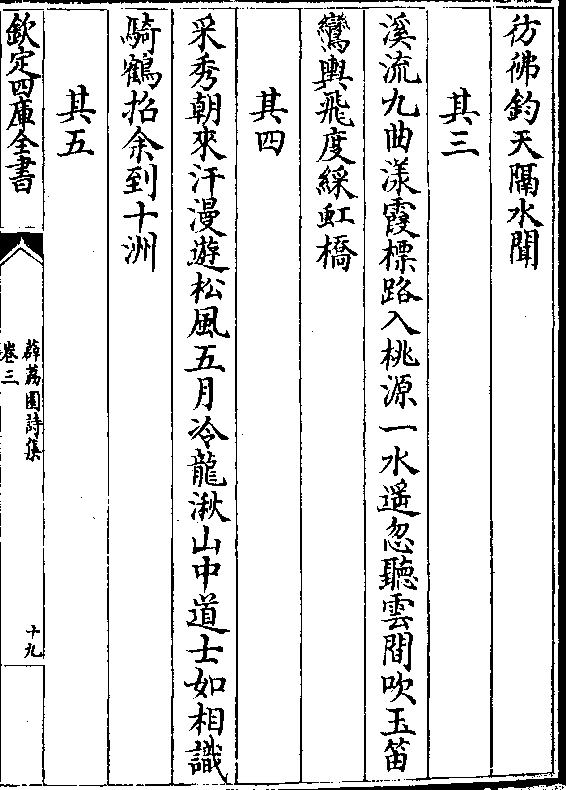 彷彿鈞天隔水聞
其三
溪流九曲漾霞標路入桃源一水遥忽聽雲間吹玉笛
鸞輿飛度綵虹橋
其四
采秀朝來汗漫遊松風五月冷龍湫山中道士如相識
騎鶴招余到十洲
其五
欽定四庫全書
薜荔園詩集
卷三
十九